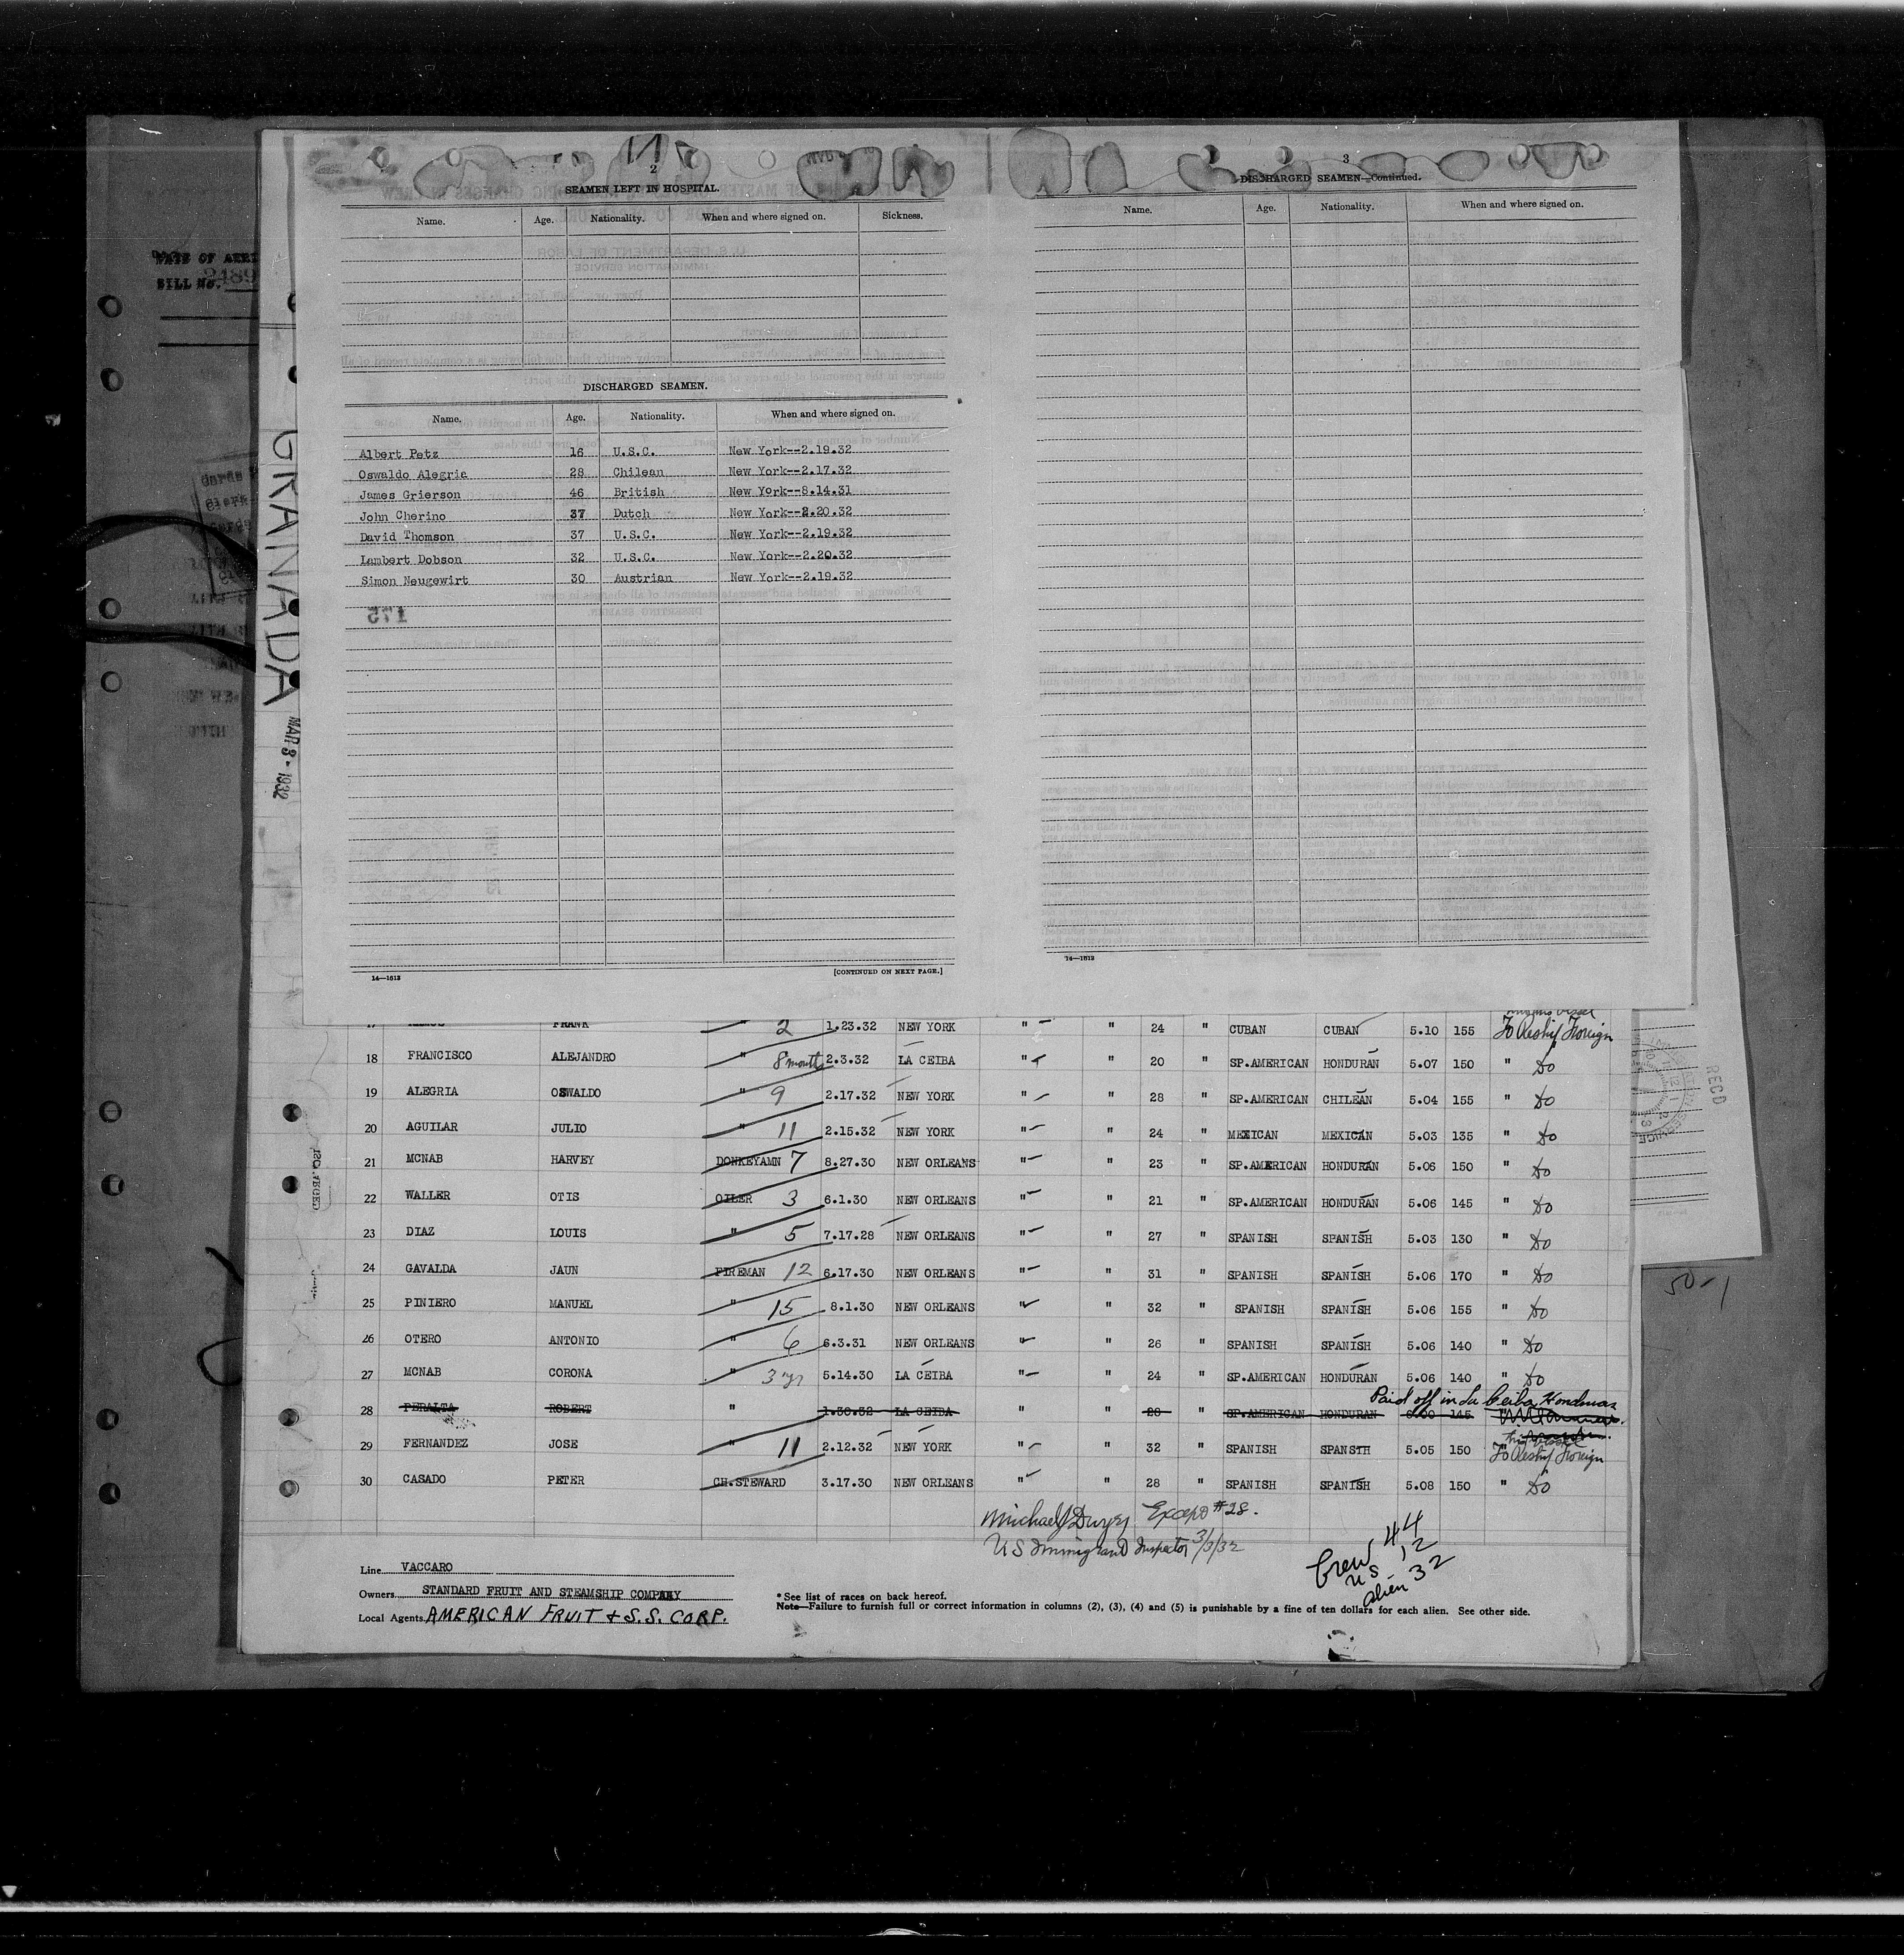 2
SEAMEN LEFT IN HOSPITAL.
Name. Age. Nationality. When and where signed on. Sickness.
DISCHARGED SEAMEN.
Name. Age. Nationality. When and where signed on.
Albert Petz 16 U.S.C. New York--2.19.32
Oswaldo Alegria 28 Chilean New York--2.17.32
James Grierson 46 British New York--8.14.31
John Cherino 37 Dutch New York--2.20.32
David Thomson 37 U.S.C. New York--2.19.32
Lambert Dobson 32 U.S.C. New York--2.20.32
Simon Neugewirt 30 Austrian New York--2.19.32
175
14—1613 [CONTINUED ON NEXT PAGE.]
3
DISCHARGED SEAMEN—Continued.
Name. Age. Nationality. When and where signed on.
14—1613
BILL NO. 2489
GRANADA
MAR 3 - 1932
RECD
17 FRANK " 2 1.23.32 NEW YORK " " 24 " CUBAN CUBAN 5.10 155 To Reship Foreign
18 FRANCISCO ALEJANDRO " 8 months 2.3.32 LA CEIBA " " 20 " SP.AMERICAN HONDURAN 5.07 150 " Do
19 ALEGRIA OSWALDO " 9 2.17.32 NEW YORK " " 28 " SP.AMERICAN CHILEAN 5.04 155 " Do
20 AGUILAR JULIO " 11 2.15.32 NEW YORK " " 24 " MEXICAN MEXICAN 5.03 135 " Do
21 MCNAB HARVEY DONKEYAMN 7 8.27.30 NEW ORLEANS " " 23 " SP.AMERICAN HONDURAN 5.06 150 " Do
22 WALLER OTIS OILER 3 6.1.30 NEW ORLEANS " " 21 " SP.AMERICAN HONDURAN 5.06 145 " Do
23 DIAZ LOUIS " 5 7.17.28 NEW ORLEANS " " 27 " SPANISH SPANISH 5.03 130 " Do
24 GAVALDA JAUN FIREMAN 12 6.17.30 NEW ORLEANS " " 31 " SPANISH SPANISH 5.06 170 " Do
25 PINIERO MANUEL " 15 8.1.30 NEW ORLEANS " " 32 " SPANISH SPANISH 5.06 155 " Do
26 OTERO ANTONIO " 6 6.3.31 NEW ORLEANS " " 26 " SPANISH SPANISH 5.06 140 " Do
27 MCNAB CORONA " 3 yr 5.14.30 LA CEIBA " " 24 " SP.AMERICAN HONDURAN 5.06 140 " Do
Paid off in La Ceiba, Honduras
28 PERALTA ROBERT " 1.30.32 LA CEIBA " " 20 " SP.AMERICAN HONDURAN 145
29 FERNANDEZ JOSE " 11 2.12.32 NEW YORK " " 32 " SPANISH SPANSTH 5.05 150 To Reship Foreign
30 CASADO PETER CH.STEWARD 3.17.30 NEW ORLEANS " " 28 " SPANISH SPANISH 5.08 150 " Do
Michael J Dwyer Except #28.
US Immigrant Inspector 3/3/32
Crew 44
US 12
alien 32
50-1
Line VACCARO
Owners STANDARD FRUIT AND STEAMSHIP COMPANY
Local Agents AMERICAN FRUIT + S.S. CORP.
* See list of races on back hereof.
Note—Failure to furnish full or correct information in columns (2), (3), (4) and (5) is punishable by a fine of ten dollars for each alien. See other side.